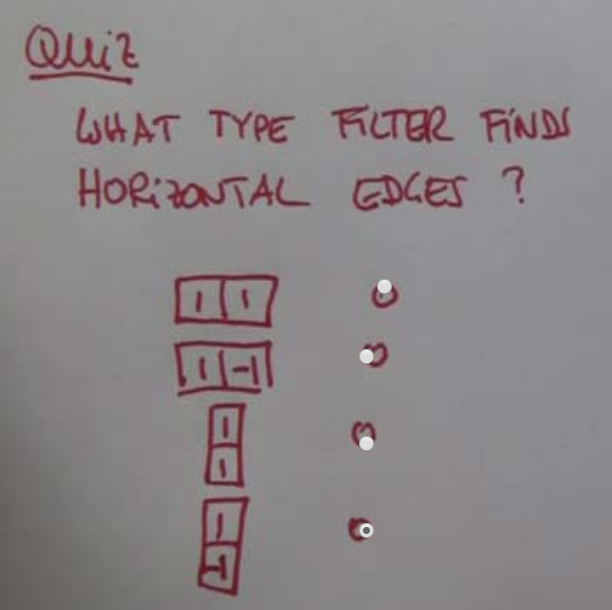 QUIZ
WHAT TYPE FILTER FINDS
HORIZONTAL EDGES ?
1 1
1 -1
1
1
1
-1